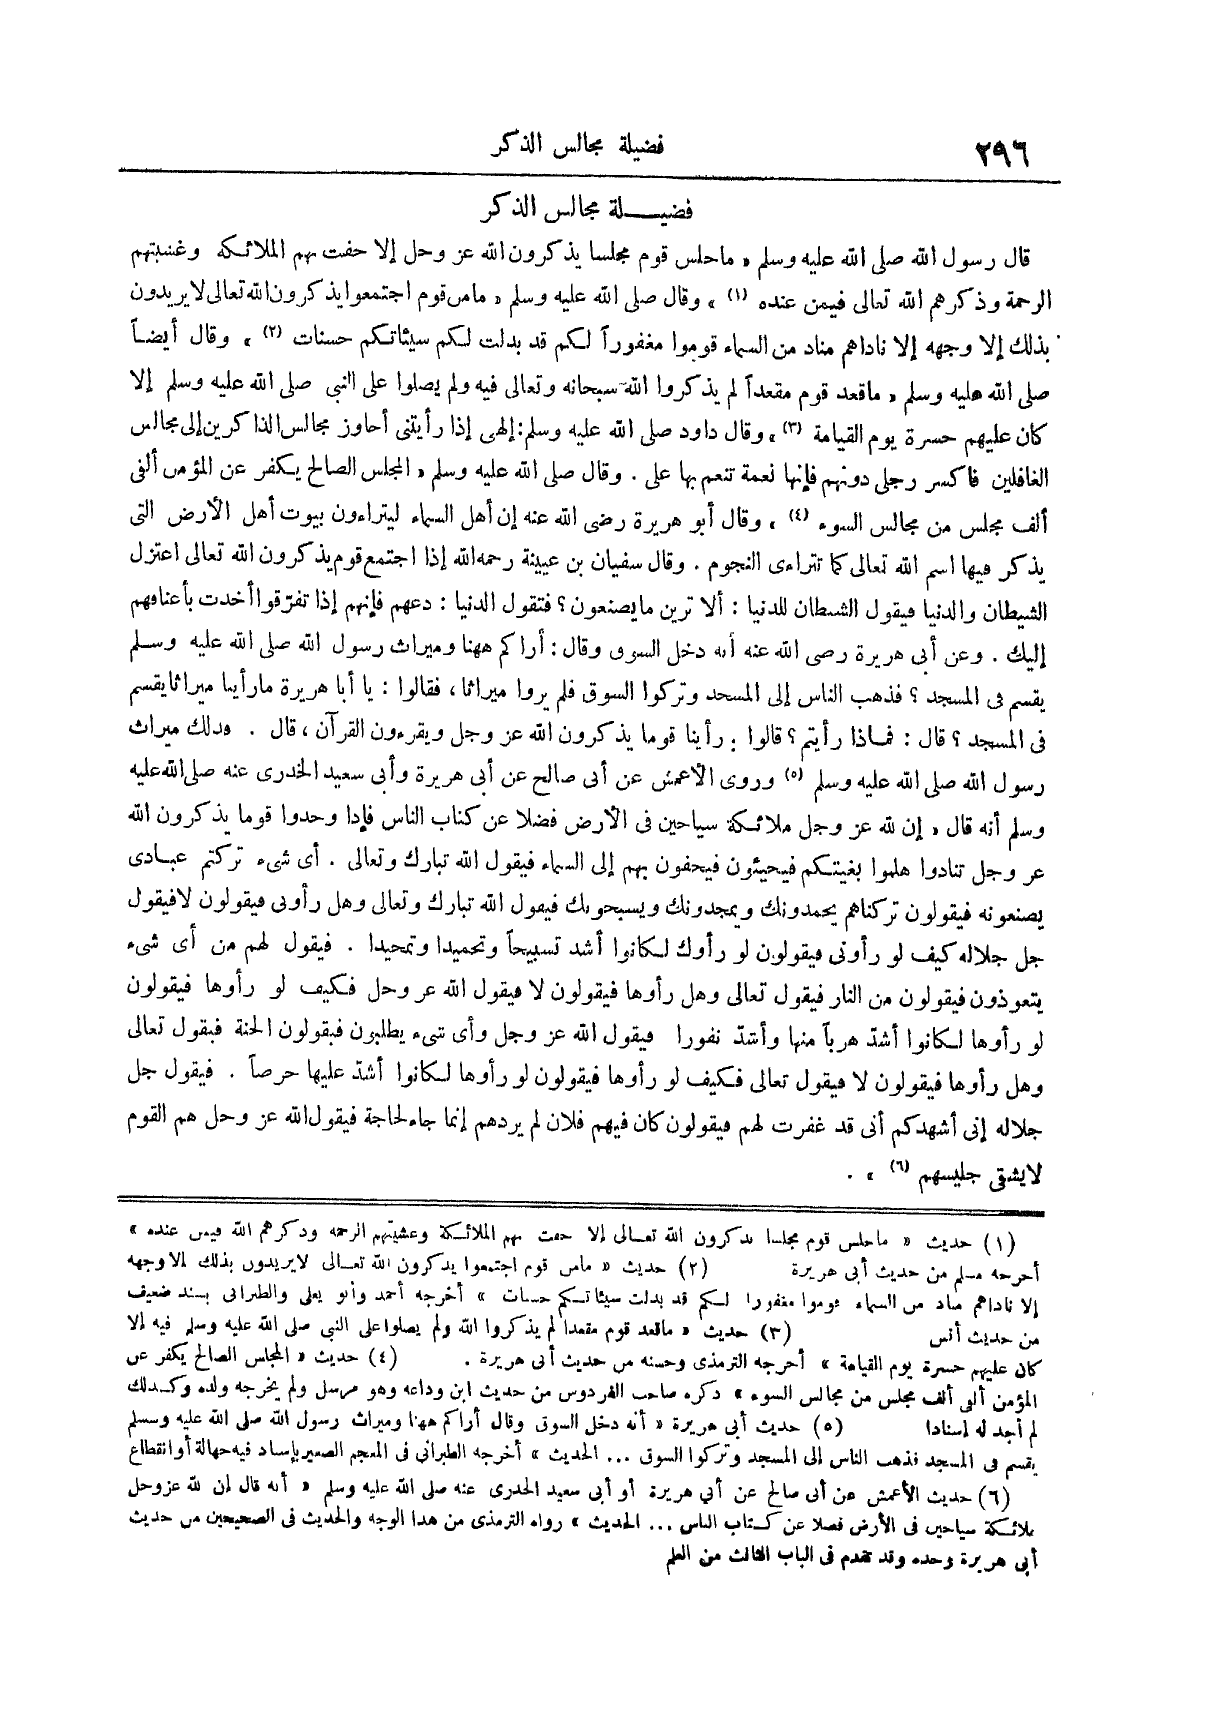 ٢٩٦
فضيلة مجالس الذكر
فضيـــلة مجالس الذكر
قال رسول الله صلى الله عليه وسلم « ماجلس قوم مجلسا يذكرون الله عز وجل إلا حفت بهم الملائكة وغشيتهم
الرحمة وذكرهم الله تعالى فيمن عنده (١) » وقال صلى الله عليه وسلم « مامن قوم اجتمعوا يذكرون الله تعالى لا يريدون
بذلك إلا وجهه إلا ناداهم مناد من السماء قوموا مغفوراً لكم قد بدلت لكم سيئاتكم حسنات (٢) » وقال أيضـاً
صلى الله عليه وسلم « ماقعد قوم مقعداً لم يذكروا الله سبحانه وتعالى فيه ولم يصلوا على النبي صلى الله عليه وسلم إلا
كان عليهم حسرة يوم القيامة (٣) » وقال داود صلى الله عليه وسلم : إلهى إذا رأيتنى أجاوز مجالس الذاكرين إلى مجالس
الغافلين فاكسر رجلى دونهم فإنها نعمة تنعم بها على . وقال صلى الله عليه وسلم « المجلس الصالح يكفر عن المؤمن ألفى
ألف مجلس من مجالس السوء (٤) » وقال أبو هريرة رضى الله عنه إن أهل السماء ليتراءون بيوت أهل الأرض التى
يذكر فيها اسم الله تعالى كما تتراءى النجوم . وقال سفيان بن عيينة رحمه الله إذا اجتمع قوم يذكرون الله تعالى اعتزل
الشيطان والدنيا فيقول الشيطان للدنيا : ألا ترين مايصنعون ؟ فتقول الدنيا : دعهم فإنهم إذا تفرّقوا أخذت بأعناقهم
إليك . وعن أبى هريرة رضى الله عنه أنه دخل السوق وقال : أراكم ههنا وميراث رسول الله صلى الله عليه وسـلم
يقسم فى المسجد ؟ فذهب الناس إلى المسجد وتركوا السوق فلم يروا ميراثا ، فقالوا : يا أبا هريرة مارأينا ميراثا يقسم
فى المسجد ؟ قال : فماذا رأيتم ؟ قالوا : رأينا قوما يذكرون الله عز وجل ويقرءون القرآن ، قال . فذلك ميراث
رسول الله صلى الله عليه وسلم (٥) وروى الأعمش عن أبى صالح عن أبى هريرة وأبى سعيد الخدرى عنه صلى الله عليه
وسلم أنه قال « إن لله عز وجل ملائكة سياحين فى الأرض فضلا عن كتاب الناس فإذا وجدوا قوما يذكرون الله
عز وجل تنادوا هلموا بغيتكم فيجيئون فيحفون بهم إلى السماء فيقول الله تبارك وتعالى . أى شىء تركتم عبادى
يصنعونه فيقولون تركناهم يحمدونك ويمجدونك ويسبحونك فيقول الله تبارك وتعالى وهل رأونى فيقولون لا فيقول
جل جلاله كيف لو رأونى فيقولون لو رأوك لكانوا أشد تسبيحاً وتحميدا وتمجيدا . فيقول لهم من أى شىء
يتعوذون فيقولون من النار فيقول تعالى وهل رأوها فيقولون لا فيقول الله عز وجل فكيف لو رأوها فيقولون
لو رأوها لكانوا أشدّ هرباً منها وأشدّ نفورا فيقول الله عز وجل وأى شىء يطلبون فيقولون الجنة فيقول تعالى
وهل رأوها فيقولون لا فيقول تعالى فكيف لو رأوها فيقولون لو رأوها لكانوا أشدّ عليها حرصاً . فيقول جل
جلاله إنى أشهدكم أنى قد غفرت لهم فيقولون كان فيهم فلان لم يردهم إنما جاء لحاجة فيقول الله عز وجل هم القوم
لايشقى جليسهم (٦) » .
(١) حديث « ماجلس قوم مجلسا يذكرون الله تعالى إلا حفت بهم الملائكة وغشيتهم الرحمة وذكرهم الله فيمن عنده »
أخرجه مسلم من حديث أبى هريرة (٢) حديث « مامن قوم اجتمعوا يذكرون الله تعالى لايريدون بذلك إلا وجهه
إلا ناداهم مناد من السماء قوموا مغفورا لكم قد بدلت سيئاتكم حسنات » أخرجه أحمد وأبو يعلى والطبرانى بسند ضعيف
من حديث أنس (٣) حديث « ماقعد قوم مقعدا لم يذكروا الله ولم يصلوا على النبي صلى الله عليه وسلم فيه إلا
كان عليهم حسرة يوم القيامة » أخرجه الترمذى وحسنه من حديث أبى هريرة . (٤) حديث « المجلس الصالح يكفر عن
المؤمن ألفى ألف مجلس من مجالس السوء » ذكره صاحب الفردوس من حديث ابن وداعة وهو مرسل ولم يخرجه ولده وكذلك
لم أجد له إسنادا (٥) حديث أبى هريرة « أنه دخل السوق وقال أراكم ههنا وميراث رسول الله صلى الله عليه وسلم
يقسم فى المسجد فذهب الناس إلى المسجد وتركوا السوق ... الحديث » أخرجه الطبرانى فى المعجم الصغير بإسناد فيه جهالة أو انقطاع
(٦) حديث الأعمش عن أبى صالح عن أبي هريرة أو أبى سعيد الخدرى عنه صلى الله عليه وسلم « أنه قال إن لله عز وجل
ملائكة سياحين فى الأرض فضلا عن كتاب الناس ... الحديث » رواه الترمذى من هذا الوجه والحديث فى الصحيحين من حديث
أبى هريرة وحده وقد تقدم فى الباب الثالث من العلم